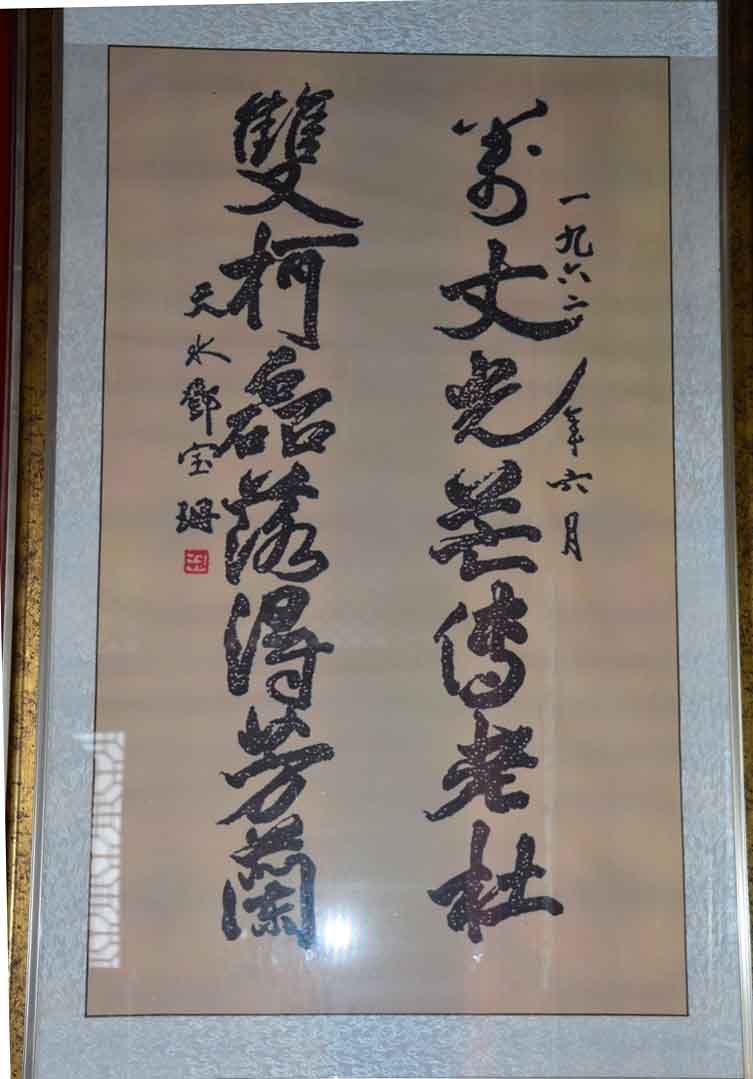 一九六二年六月
萬丈光芒傳老杜
雙柯磊落得芳蘭
天水鄧宝珊